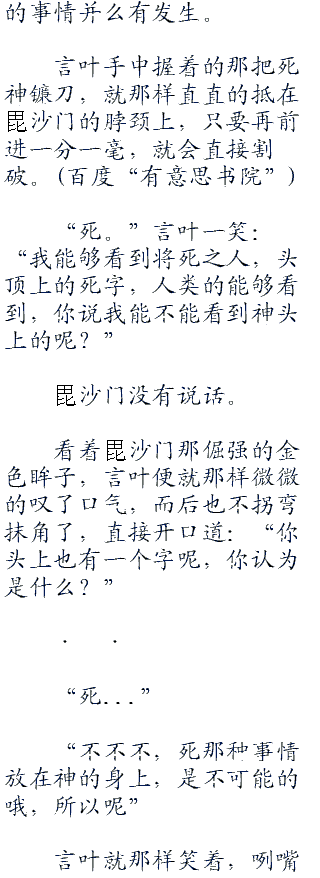 的事情并么有发生。
言叶手中握着的那把死
神镰刀，就那样直直的抵在
毘沙门的脖颈上，只要再前
进一分一毫，就会直接割
破。(百度“有意思书院”)
“死。”言叶一笑：
“我能够看到将死之人，头
顶上的死字，人类的能够看
到，你说我能不能看到神头
上的呢？”
毘沙门没有说话。
看着毘沙门那倔强的金
色眸子，言叶便就那样微微
的叹了口气，而后也不拐弯
抹角了，直接开口道：“你
头上也有一个字呢，你认为
是什么？”
. .
“死...”
“不不不，死那种事情
放在神的身上，是不可能的
哦，所以呢”
言叶就那样笑着，咧嘴